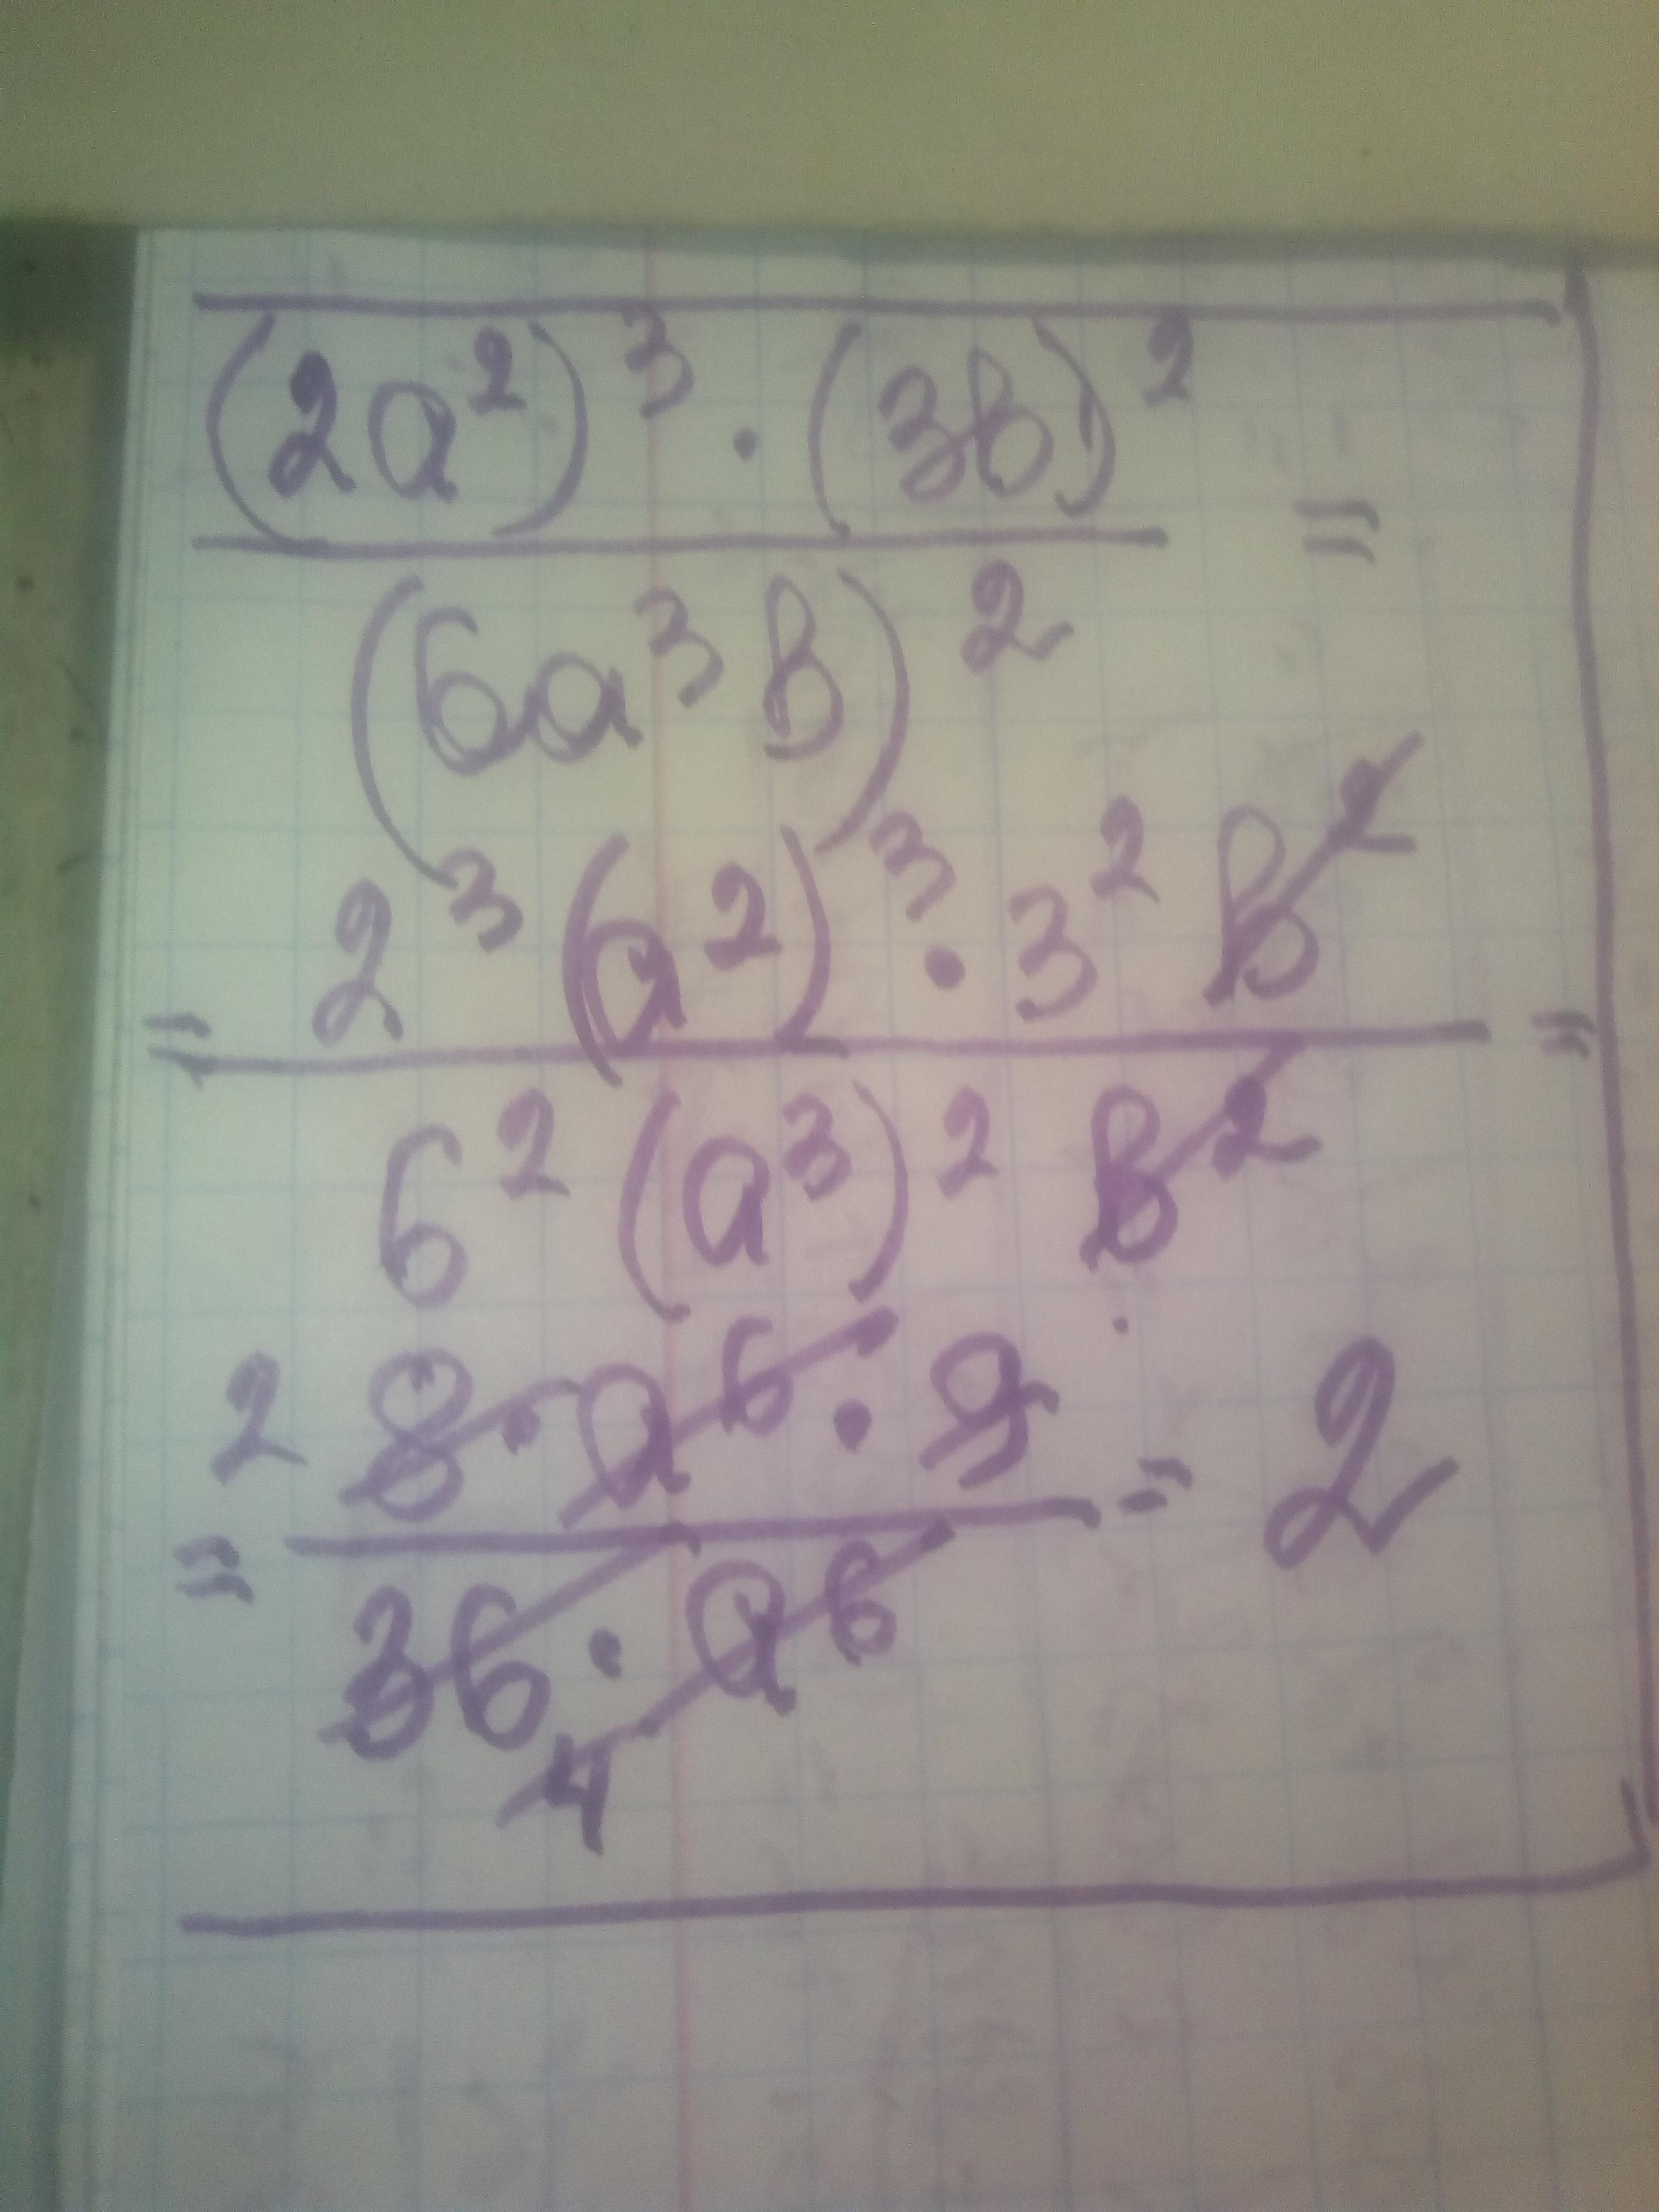 (2a²)³ · (3b)²
=
(6a³b)²
= 2³(a²)³ · 3² b² =
6² (a³)² b²
2 8 · a⁶ · 9
= = 2
36 · a⁶
4